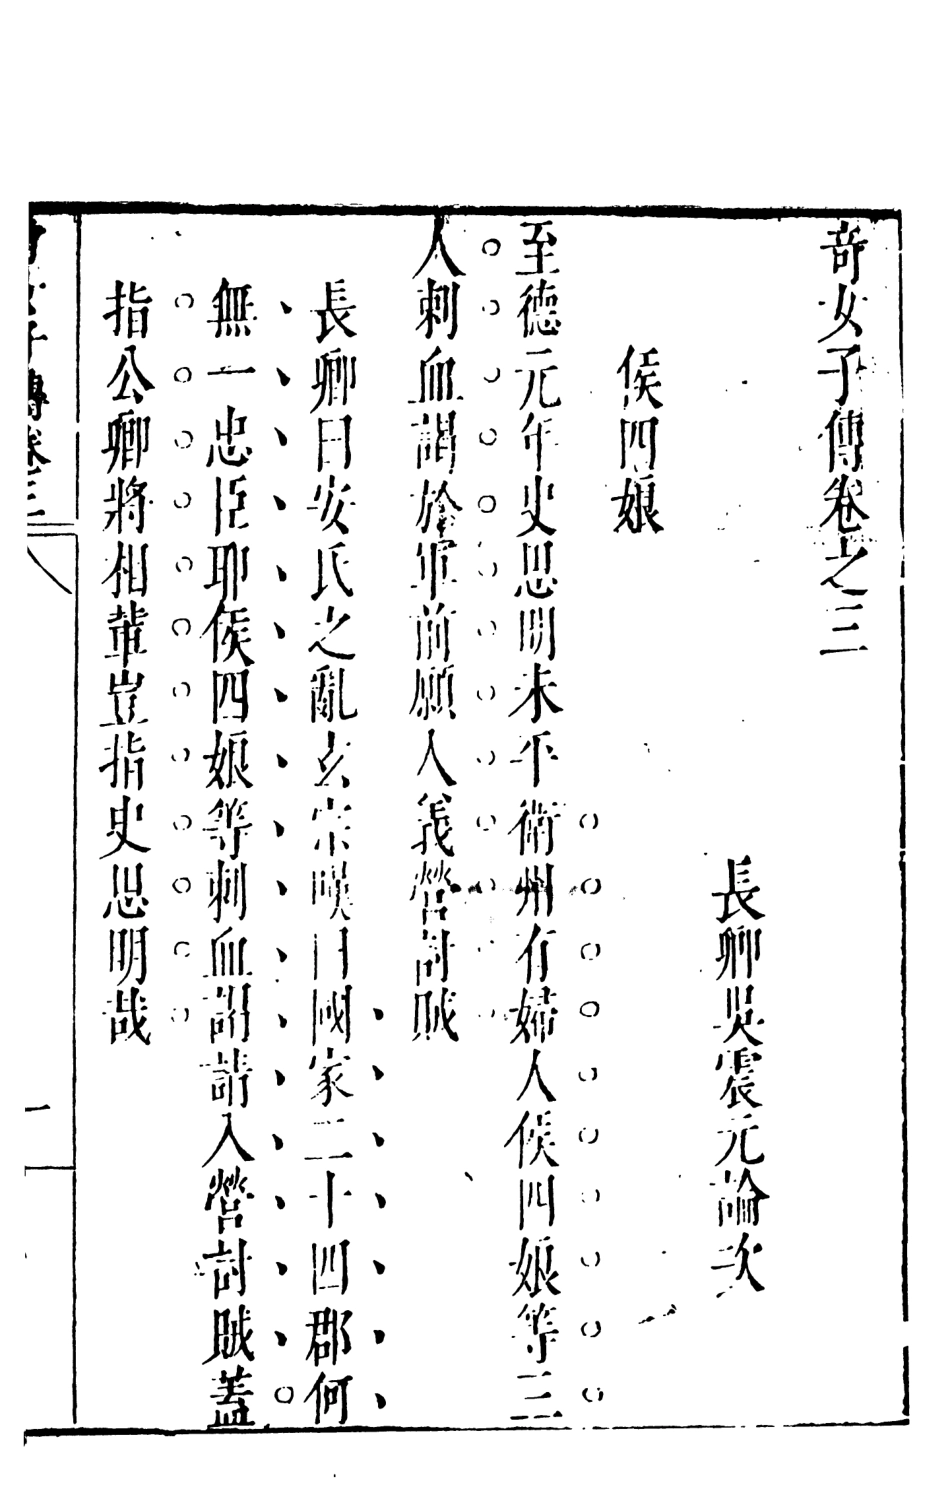 奇女子傳卷之三
長卿吳震元論次
侯四娘
至德元年史思明未平衛州有婦人侯四娘等三
人刺血謁於軍前願入義營討賊
長卿曰安氏之亂玄宗嘆曰國家二十四郡何
無一忠臣耶侯四娘等刺血謁請入營討賊蓋
指公卿將相輩豈指史思明哉
奇女子傳卷三
一